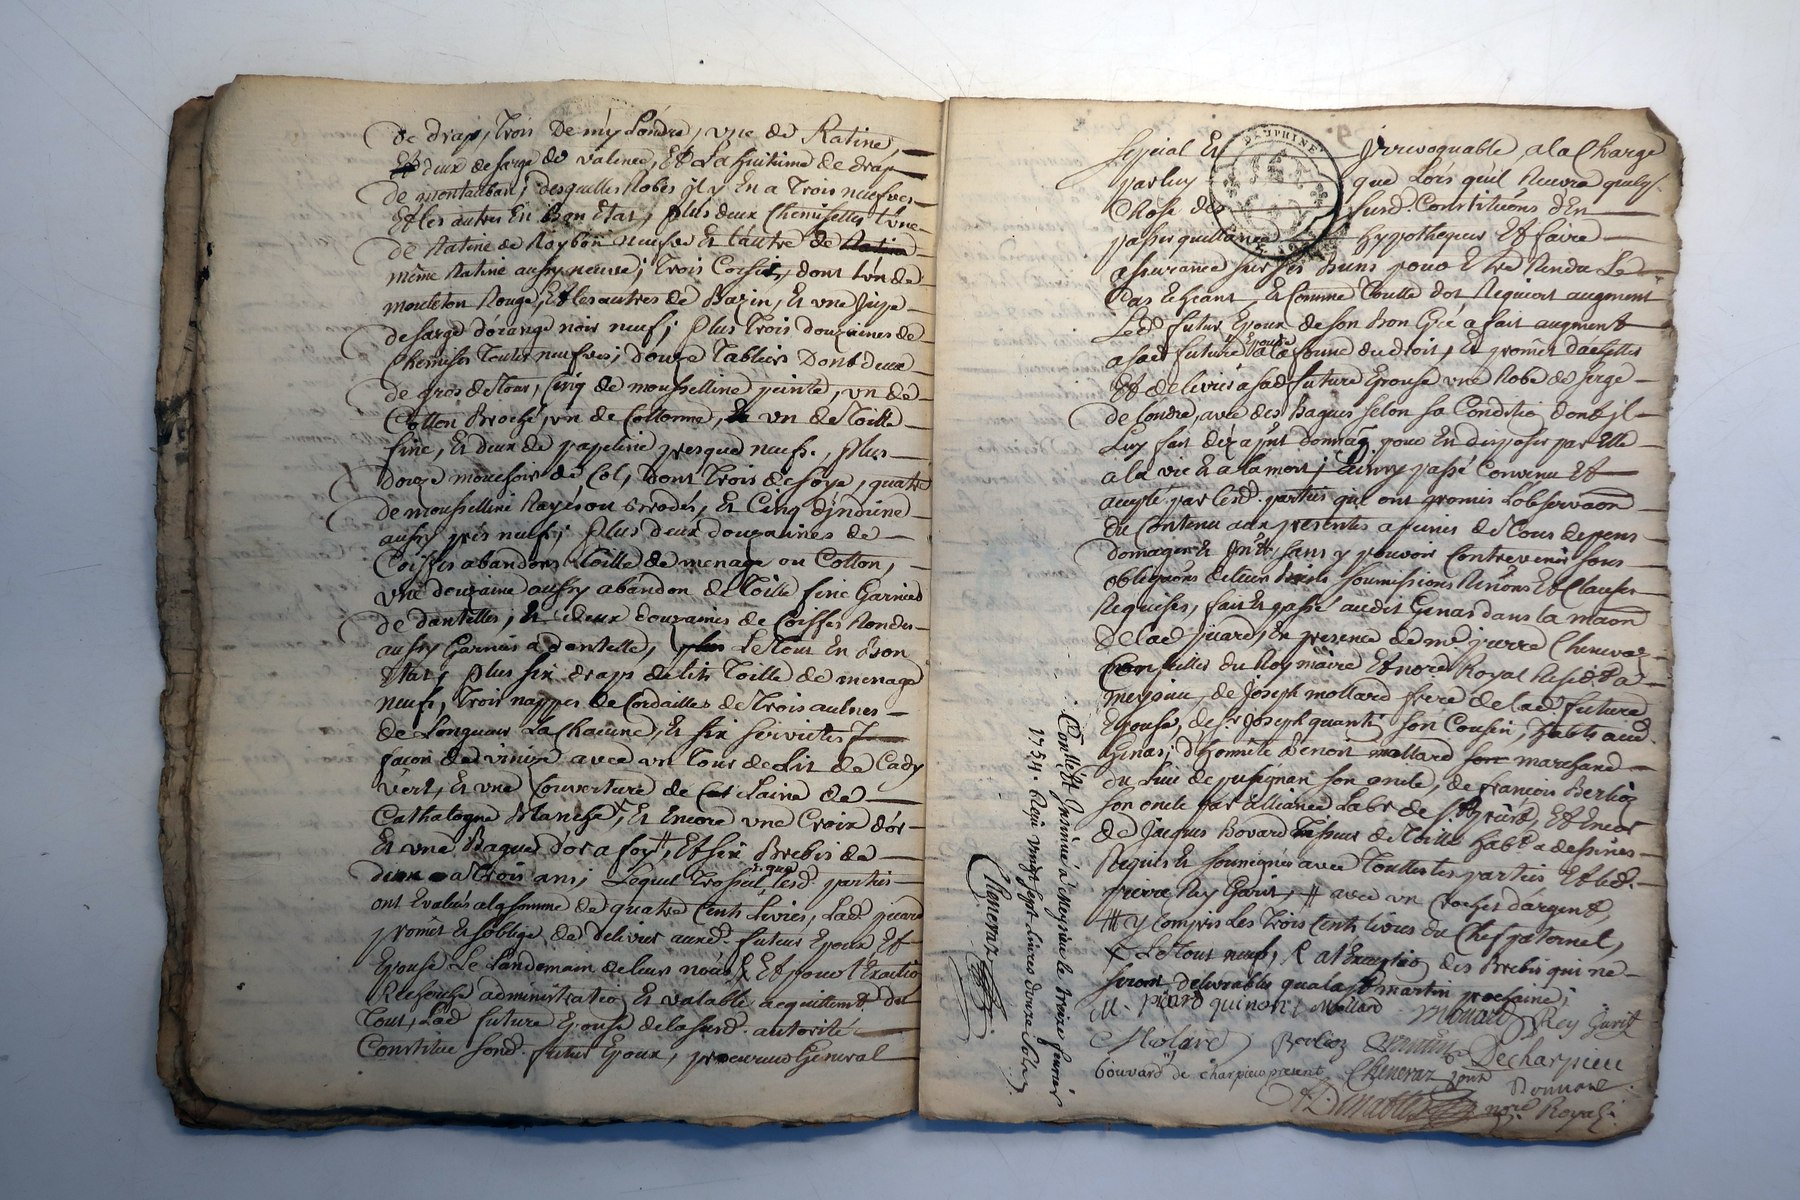 de drap, trois de my Londre, une de Ratine,
deux de sarge de valence, Et La huitieme de drap
de montauban, desquelles Robes jl y En a trois neufves
Et les autres En Bon Etat, plus deux Chemisettes l'une
de Ratine de Roybon neufve Et l'autre de
même Ratine aussy neuve; trois Corsets, dont l'un de
mouleton Rouge, Et les autres de Bazin, Et une Juppe
de sarge d'orange noir neuf; plus trois douzaines de
Chemises toutes neufves; douze tabliers Dont deux
de gros de tour, Cinq de mousselline peinte, un de
Cotton Broché, un de Cottonne, un de toille
fine, Et deux de papeline presque neufs, plus
douze mouchoirs de Col, dont trois de soye, quatre
de mousselline Rayés ou brodés, Et Cinq d'jndiene
aussy près neufs; plus deux douzaines de
Coiffes abandons toille de menage ou Cotton,
une douzaine aussy abandon de toille fine Garnies
de dantelles, Et deux douzaines de Coiffes Rondes
aussy Garnies a dantelle, Le tout En Bon
Etat, plus six draps de lits toille de menage
neufs, trois nappes de Cordailles de trois aulnes
de Longueur La chacune, Et six serviettes
façon de venize avec un tour de Lit de Cady
vert, Et une Couverture de Laine de
Cathalogne Blanche, Et Encore une Croix d'or
Et une Bague d'or a foy #, Et six Brebis de
deux a trois ans; Lequel trossel, que lesd. parties
ont Evalués a la somme de quatre Cents Livres, Lad. picard
promet Et s'oblige de delivrer auxd. futurs Epoux Et
Epouse Le Landemain de leurs nôces, Et pour l'Exaction
Recherche administration Et valable acquittement du
tout, Lad. future Epouse de la susd. autorité
Constitue sond. futur Epoux, procureur General
special Et jrrevoquable a la Charge
par luy que Lors qu'il Recevra quelq.
Chose des susd. Constitutions d'En
passer quittance hypothequer Et faire
assurance sur ses Biens pour Etre Rendu Le
Cas Echeant, Et Comme toutte dot Requiert augment
Led. futur Epoux de son Bon Gré a fait augment
a sad. future Epouse a la forme du droit, Et promet d'achetter
Et delivrer a sad. future Epouse une Robe de serge
de Londre, avec des Bagues selon sa Condition dont jl
Luy fait dèz a pnt donnaon pour En disposer par Elle
a la vie Et a la mort; ainsy passé Convenu Et
accepté par lesd. parties qui ont promis L'observaon
Du Contenu aux presentes a peines de tous depens
domages Et jnts, sans y pouvoir Contrevenir sous
obligaons de leurs biens soumissions Renons Et Clauses
Requises, fait Et passé audit Genas dans la maon
de lad. picard, En presence de me pierre Cheneraz
du Roy maire Et nore Royal Residt a
meyzieu, de Joseph mollard frere de lad. future
Epouse, de sr Joseph quantin son Cousin, habts aud.
Genas, d'honnête Benoit mollard marchand
du Lieu de pusignan son oncle, de francois Berlioz
son oncle par alliance Labr de st. priest, Et Encor
de Jacques Bovard tisseur de toille habt a dessines
Requis Et soussignés avec touttes les parties Et led.
pierre Rey Gavit, # avec un crochet d'argent,
# y Compris Les trois Cents livres du Chef paternel,
Le tout neuf, & a l'Exception des Brebis qui ne
seront delivrables qu'a la st martin prochaine;
M. picard quinon mollard mouard Rey Gavit
Molard Berlioz quantin Decharpieu
bouvard de charpieu present Cheneraz pnt Bouvard
nore Royal
Contllé Et Insinué a Meyzieu le treize fevrier
1754. Reçu vingt sept livres douze sols
Cheneraz
DAUPHINE